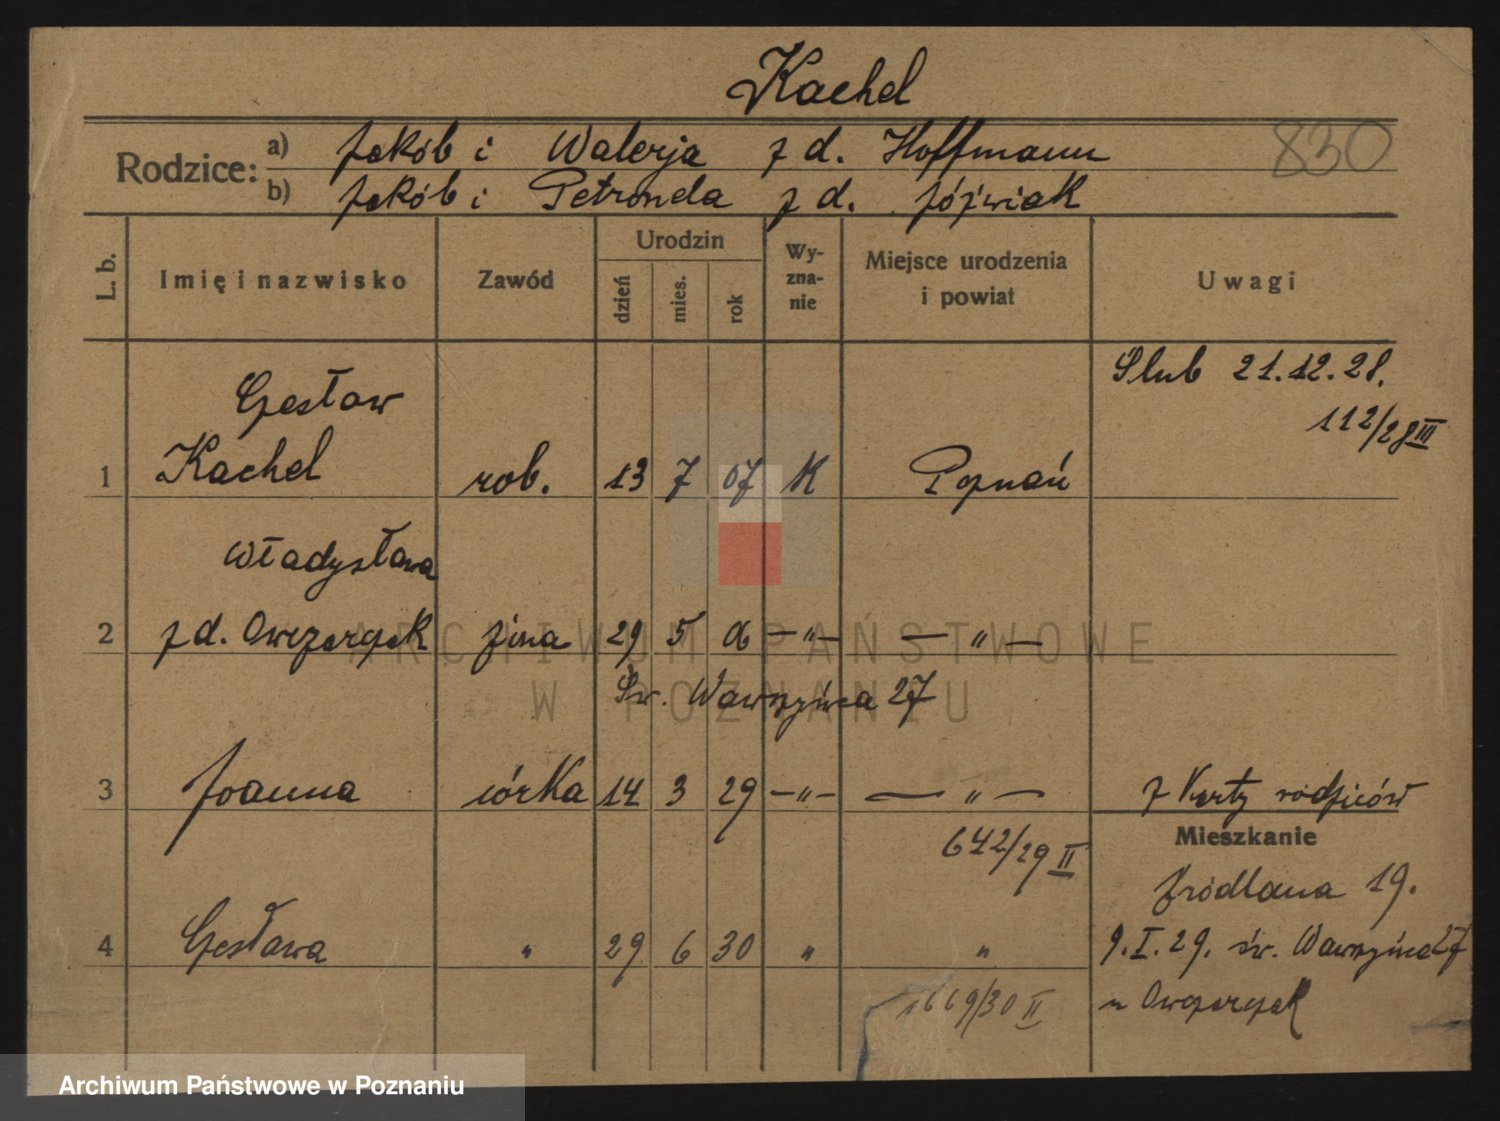 Kachel
830
Rodzice: a) Jakób i Walerja z d. Hoffmann
b) Jakób i Petronela z d. Józwiak
L. b. Imię i nazwisko Zawód Urodzin dzień mies. rok Wy-zna-nie Miejsce urodzenia i powiat Uwagi
Ślub 21.12.28.
112/28 III
Czesław
1 Kachel rob. 13 7 07 K Poznań
Władysława
2 z d. Owczarczak żona 29 5 06 —„— —„—
Św. Wawrzyńca 27
3 Joanna córka 14 3 29 —„— —„— z Karty rodziców
642/29 II
Mieszkanie
Źródlana 19.
4 Czesława „ 29 6 30 „ „ 9.I.29. św. Wawrzyńca 27
1669/30 II
u Owczarczak
ARCHIWUM PAŃSTWOWE
W POZNANIU
Archiwum Państwowe w Poznaniu